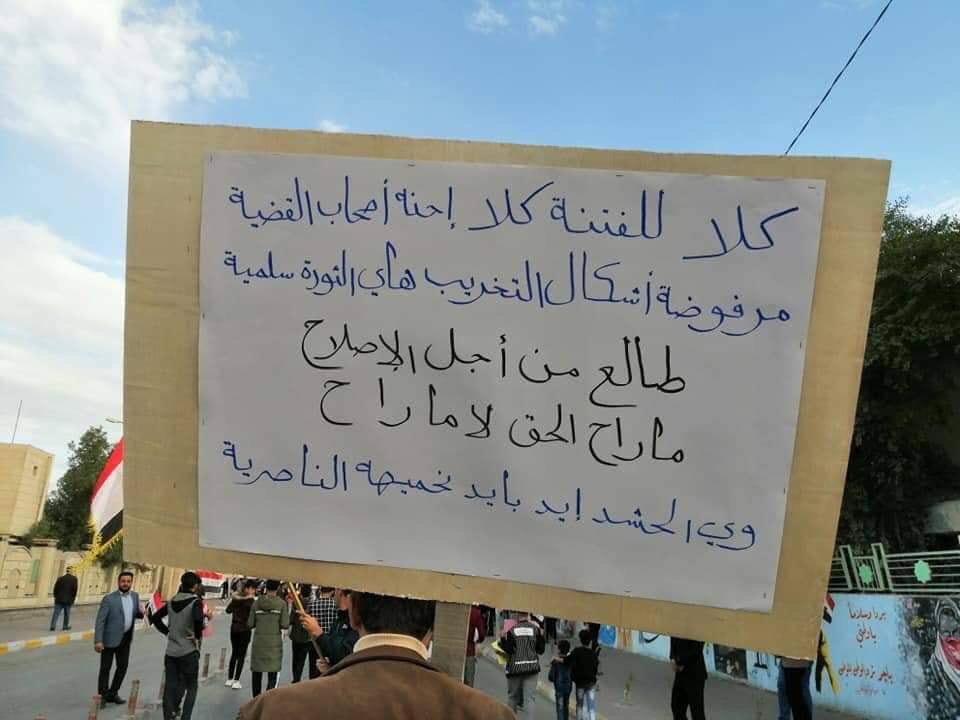 كلا للفتنة كلا إحنه أصحاب القضية
مرفوضة أشكال التخريب هاي الثورة سلمية
طالع من أجل الإصلاح
ماراح الحق لا ماراح
وي الحشد إيد بايد نحميهه الناصرية
بردا وسلاما